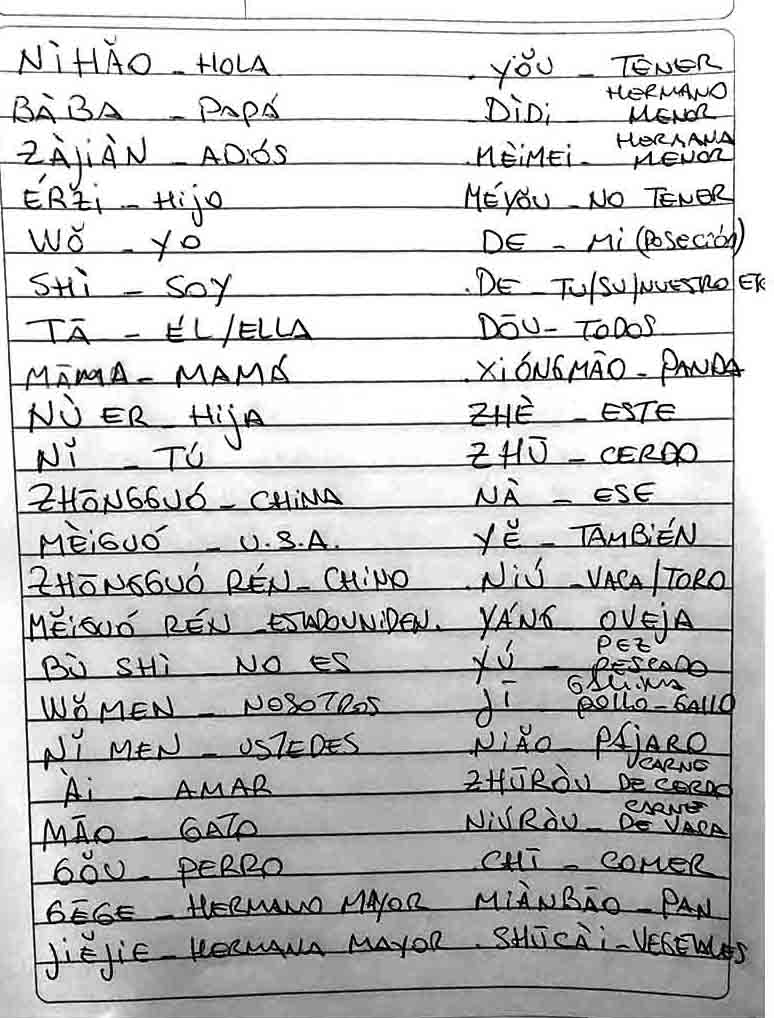 NÌHǍO - HOLA
BÀBA - PAPÁ
ZÀJIÀN - ADIÓS
ÉRZI - HIJO
WǑ - YO
SHÌ - SOY
TĀ - ÉL/ELLA
MĀMA - MAMÁ
NǙ ER - HIJA
NǏ - TÚ
ZHŌNGGUÓ - CHINA
MĚIGUÓ - U.S.A.
ZHŌNGGUÓ RÉN - CHINO
MĚIGUÓ RÉN - ESTADOUNIDEN.
BÙ SHÌ - NO ES
WǑ MEN - NOSOTROS
NǏ MEN - USTEDES
ÀI - AMAR
MĀO - GATO
GǑU - PERRO
GĒGE - HERMANO MAYOR
JIĚJIE - HERMANA MAYOR
YǑU - TENER
DÌDI HERMANO MENOR
MÈIMEI - HERMANA MENOR
MÉYǑU - NO TENER
DE - MI (POSECIÓN)
DE - TU/SU/NUESTRO ETC
DŌU - TODOS
XIÓNGMĀO - PANDA
ZHÈ - ESTE
ZHŪ - CERDO
NÀ - ESE
YĚ - TAMBIÉN
NIÚ - VACA/TORO
YÁNG OVEJA
YÚ - PEZ PESCADO
JĪ - GALLINA POLLO - GALLO
NIǍO - PÁJARO
ZHŪRÒU CARNE DE CERDO
NIÚRÒU - CARNE DE VACA
CHĪ - COMER
MIÀNBĀO - PAN
SHŪCÀI - VEGETALES